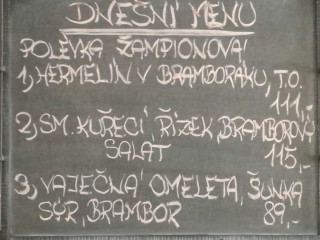 DNEŠNÍ MENU
POLÉVKA ŽAMPIONOVÁ
1, HERMELÍN V BRAMBORÁKU, T.O.
111,-
2, SM. KUŘECÍ ŘÍZEK, BRAMBOROVÝ
SALÁT 115,-
3, VAJEČNÁ OMELETA, ŠUNKA
SÝR, BRAMBOR 89,-